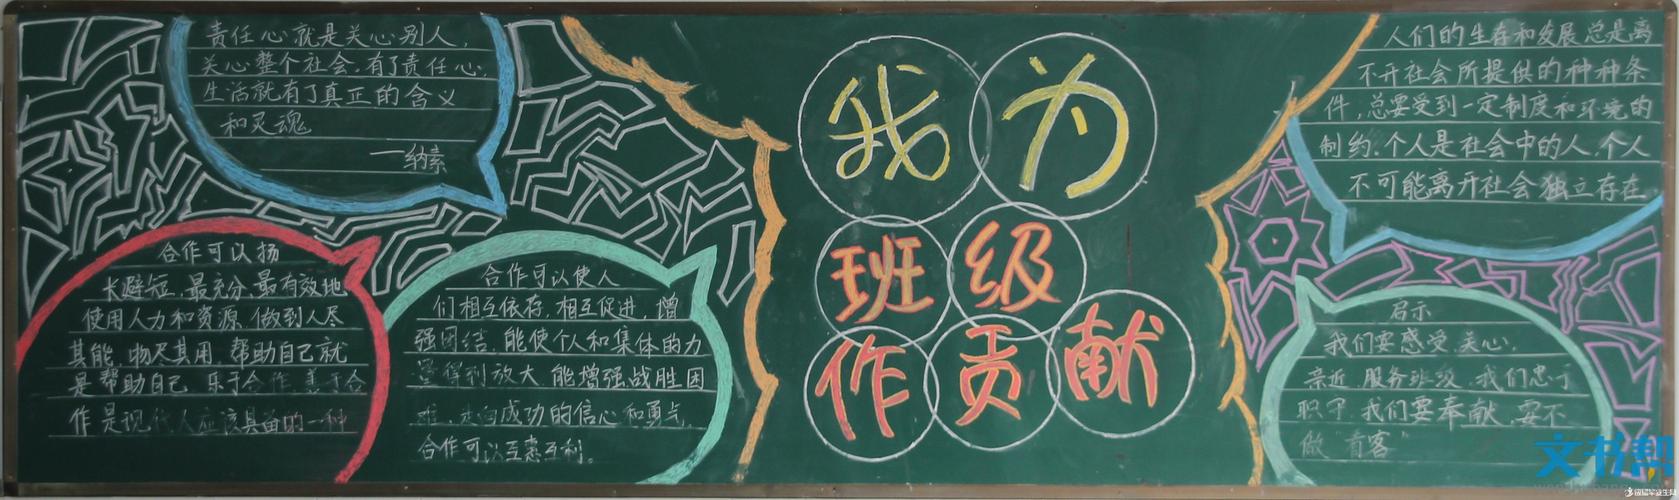 责任心就是关心别人,
关心整个社会.有了责任心,
生活就有了真正的含义
和灵魂
—纳素
合作可以扬
长避短.最充分.最有效地
使用人力和资源.做到人尽
其能.物尽其用.帮助自己就
是帮助自己.乐于合作.善于合
作是现代人应该具备的一种
合作可以使人
们相互依存.相互促进,增
强团结.能使个人和集体的力
量得到放大.能增强战胜困
难.走向成功的信心和勇气.
合作可以互惠互利。
我为
班级
作贡献
人们的生存和发展总是离
不开社会所提供的种种条
件,总要受到一定制度和环境的
制约.个人是社会中的人.个人
不可能离开社会独立存在
启示
我们要感受.关心.
亲近.服务班级.我们忠于
职守.我们要奉献.要不
做"看客"
文书帮